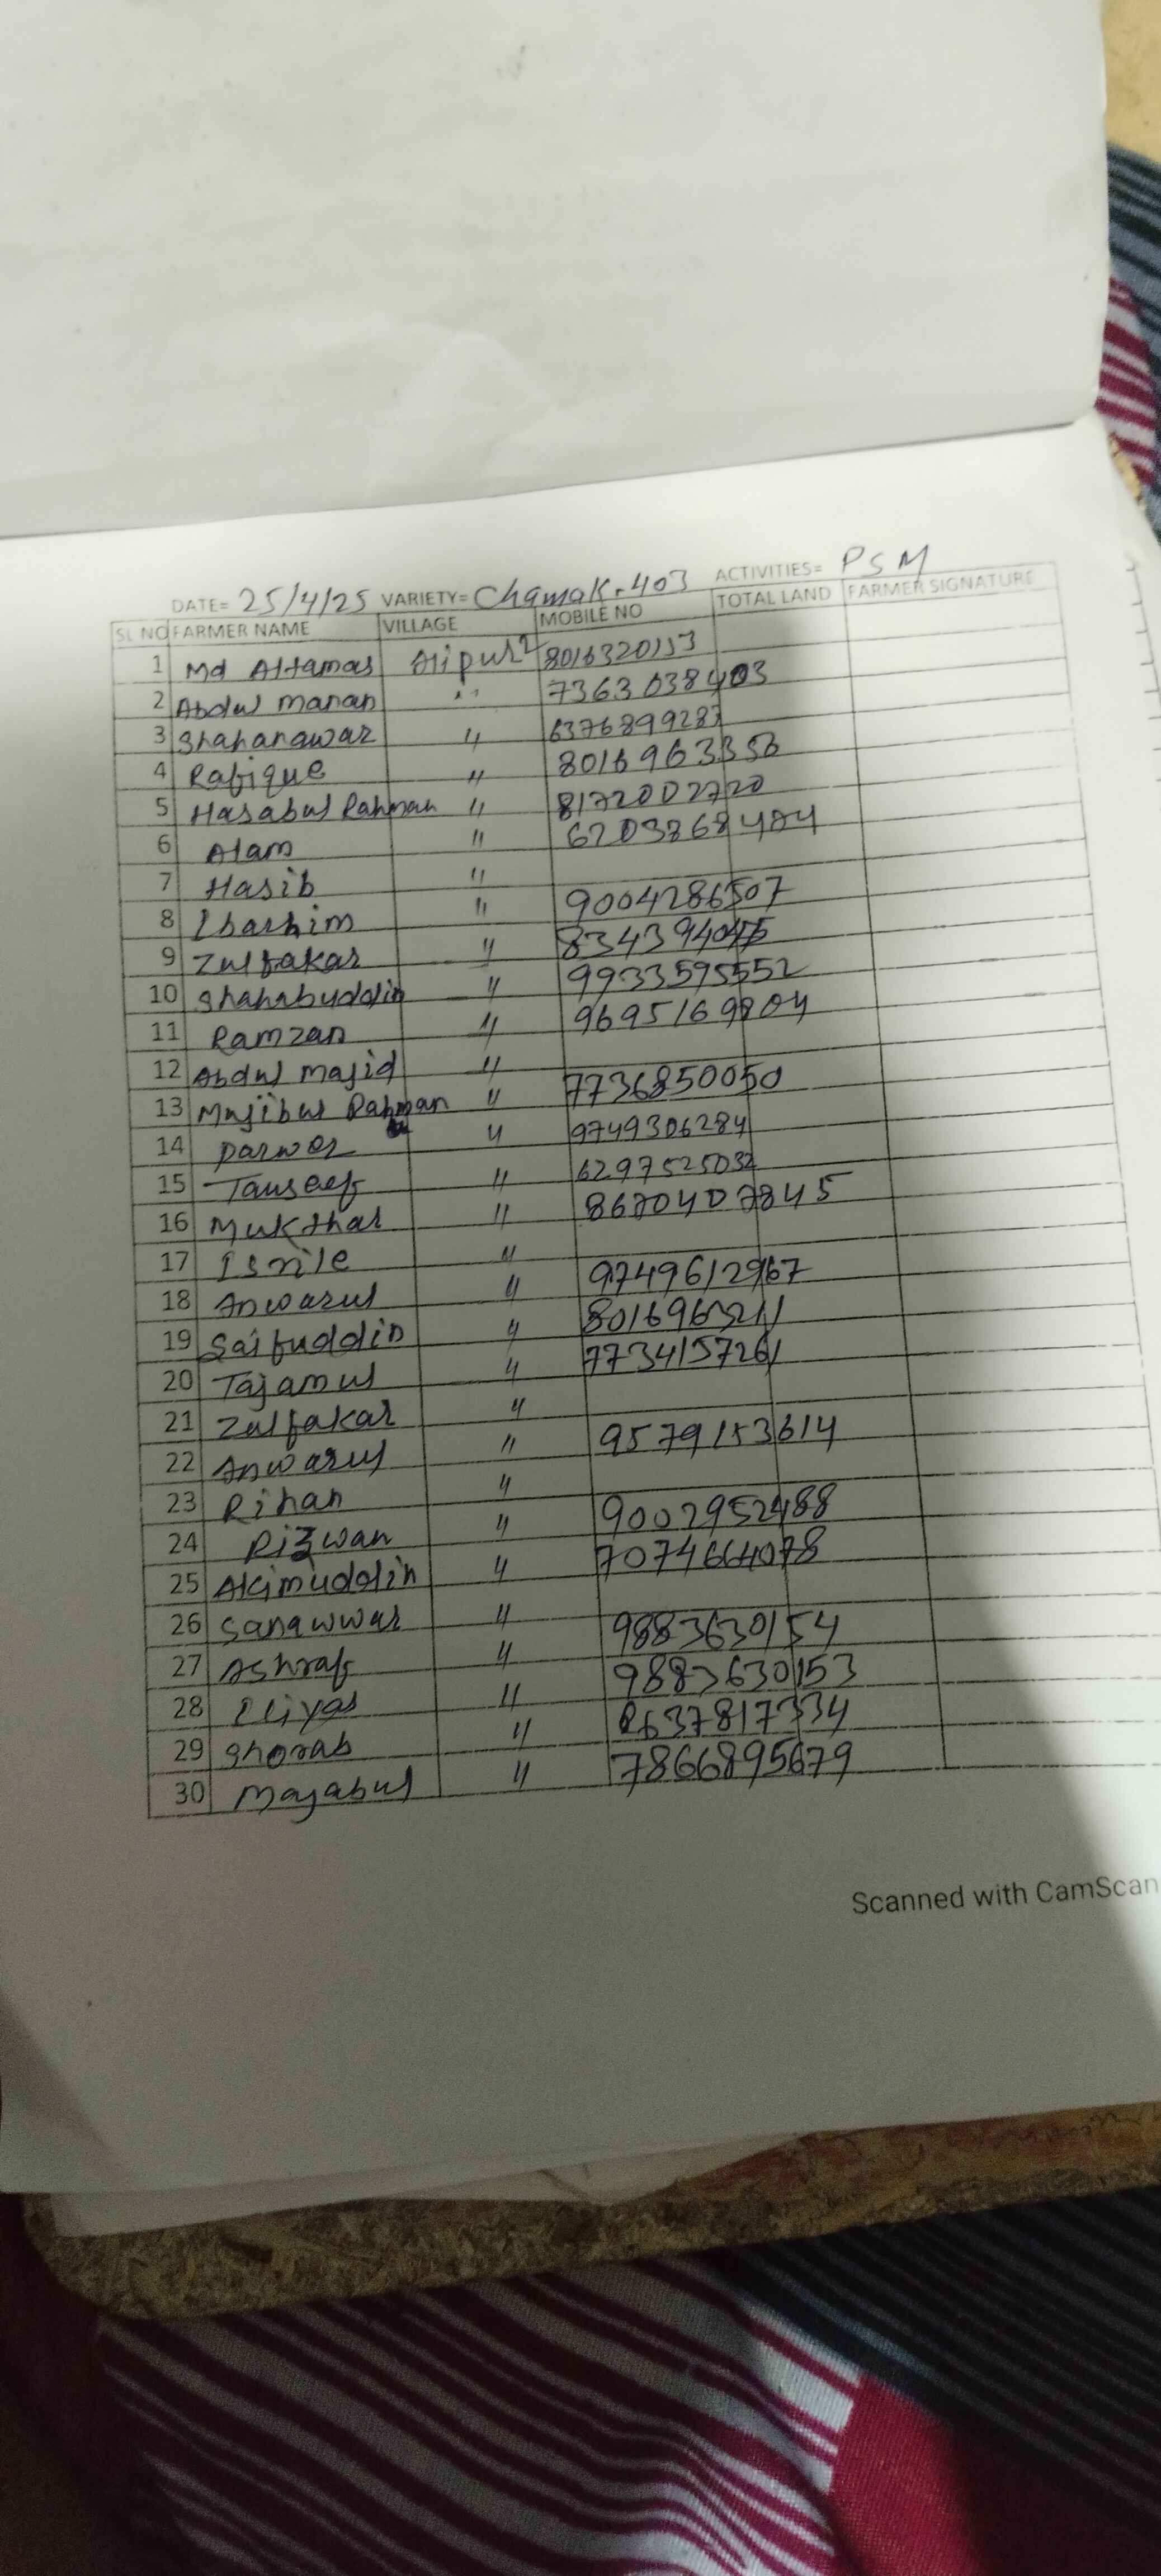 DATE= 25/4/25 VARIETY= Chamak-403 ACTIVITIES= PSM
SL NO FARMER NAME VILLAGE MOBILE NO TOTAL LAND FARMER SIGNATURE
1 Md Altamas Alipur 8016320153
2 Abdul manan " 7363038403
3 Shahanawaz " 6376899287
4 Rafique " 8016963353
5 Hasabul Rahman " 8172002720
6 Alam " 6203868474
7 Hasib "
8 Ibarhim " 9004286507
9 Zulfakar "
10 Shahabuddin " 9933595552
11 Ramzan " 9695169804
12 Abdul majid "
13 Mujibul Rahman " 7736850050
14 Parwez " 9749306284
15 Tauseef " 6297525032
16 Mukthar " 8670407845
17 Isnile "
18 Anwarul " 9749612967
19 Saifuddin " 8016963211
20 Tajamul " 7734157261
21 Zulfakar "
22 Anwarul " 9579153614
23 Rihan "
24 Rizwan " 9002952488
25 Akimuddin " 7074664078
26 Sanawwar "
27 Ashraf " 9883630154
28 Iliyas " 9883630153
29 Shorab " 8637817334
30 Majabul " 7866895679
Scanned with CamScan